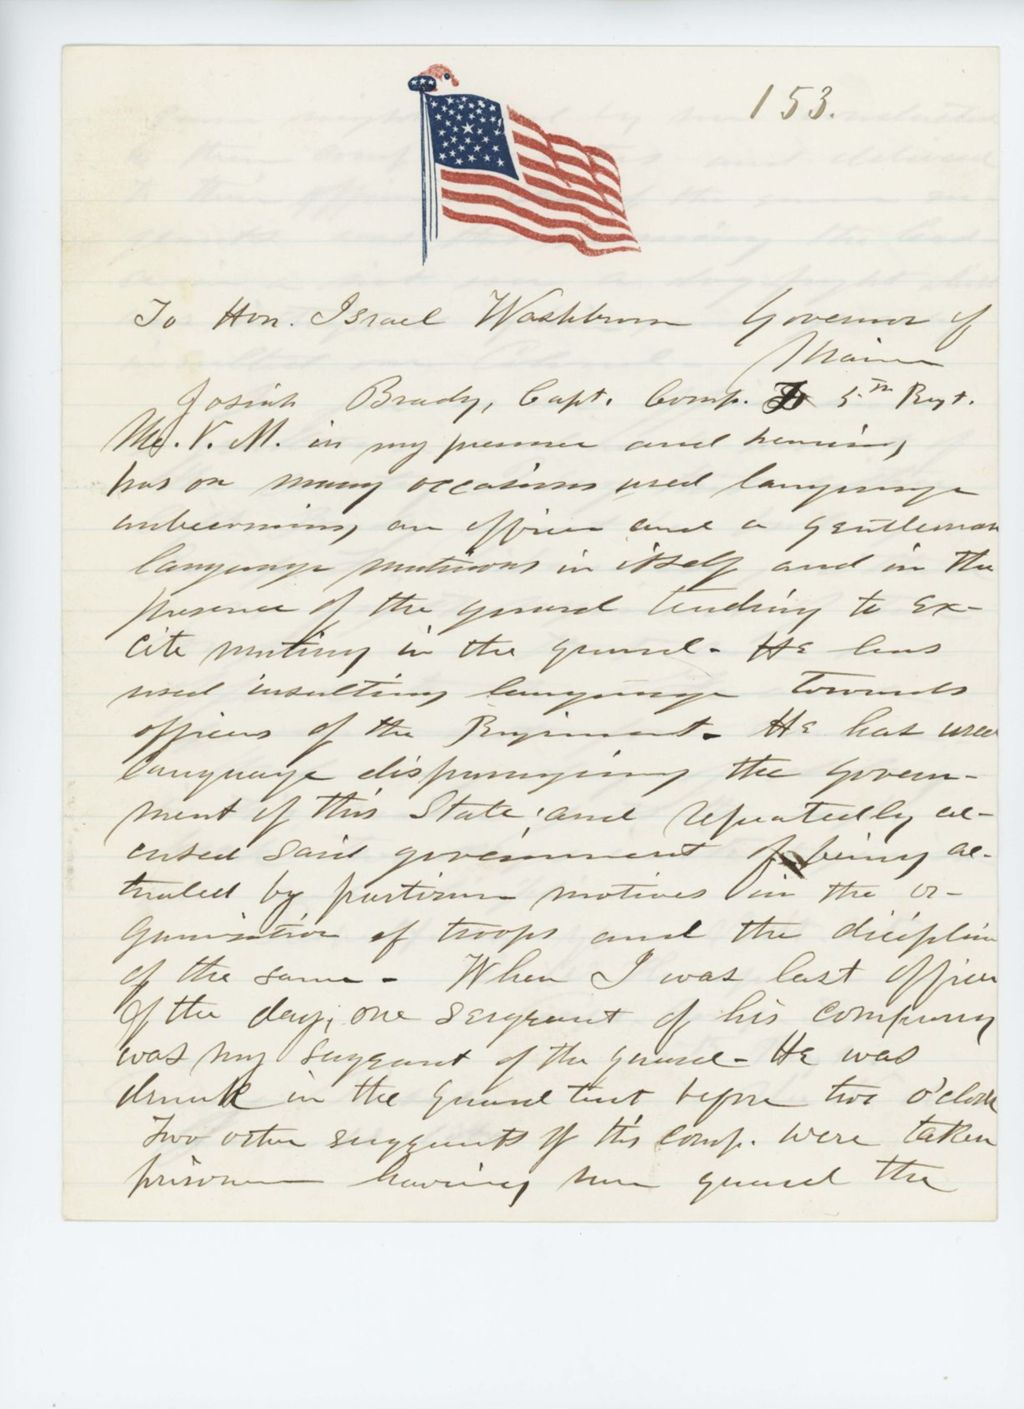 153.
To Hon. Israel Washburn Governor of
Maine
Josiah Brady, Capt. Comp. 5th Regt.
Me. V. M. in my presence and hearing,
has on many occasions used language
unbecoming, an officer and a gentleman
language mutinous in itself and in the
presence of the guard tending to ex-
cite mutiny in the guard. He has
used insulting language towards
officers of the Regiment. He has used
language disparaging the govern-
ment of this State, and repeatedly ac-
cused said government of being ac-
tuated by partizan motives in the or-
ganization of troops and the diciplin
of the same - When I was last officer
of the day, one sergeant of his company
was my sergeant of the guard - He was
drunk in the guard tent before two o'clock
Two other serggeants of this comp. were taken
prisoners having run guard the